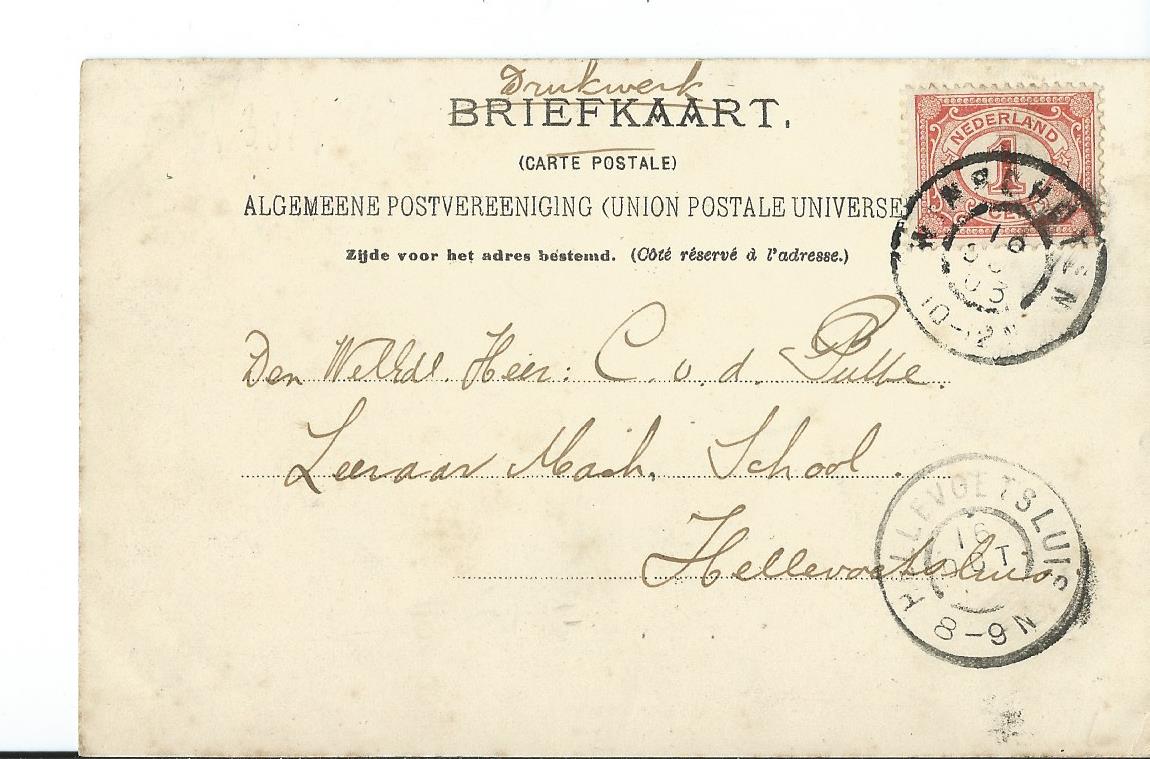 Drukwerk
BRIEFKAART.
(CARTE POSTALE)
ALGEMEENE POSTVEREENIGING (UNION POSTALE UNIVERSE
Zijde voor het adres bestemd. (Côté réservé à l'adresse.)
NEDERLAND
1
CE
WINSCHOTEN
10-12N
Den Heer: C. v. d. Putte.
Leeraar Mach. School.
Hellevoetsluis
HELLEVOETSLUIS
16
OCT
8-9N